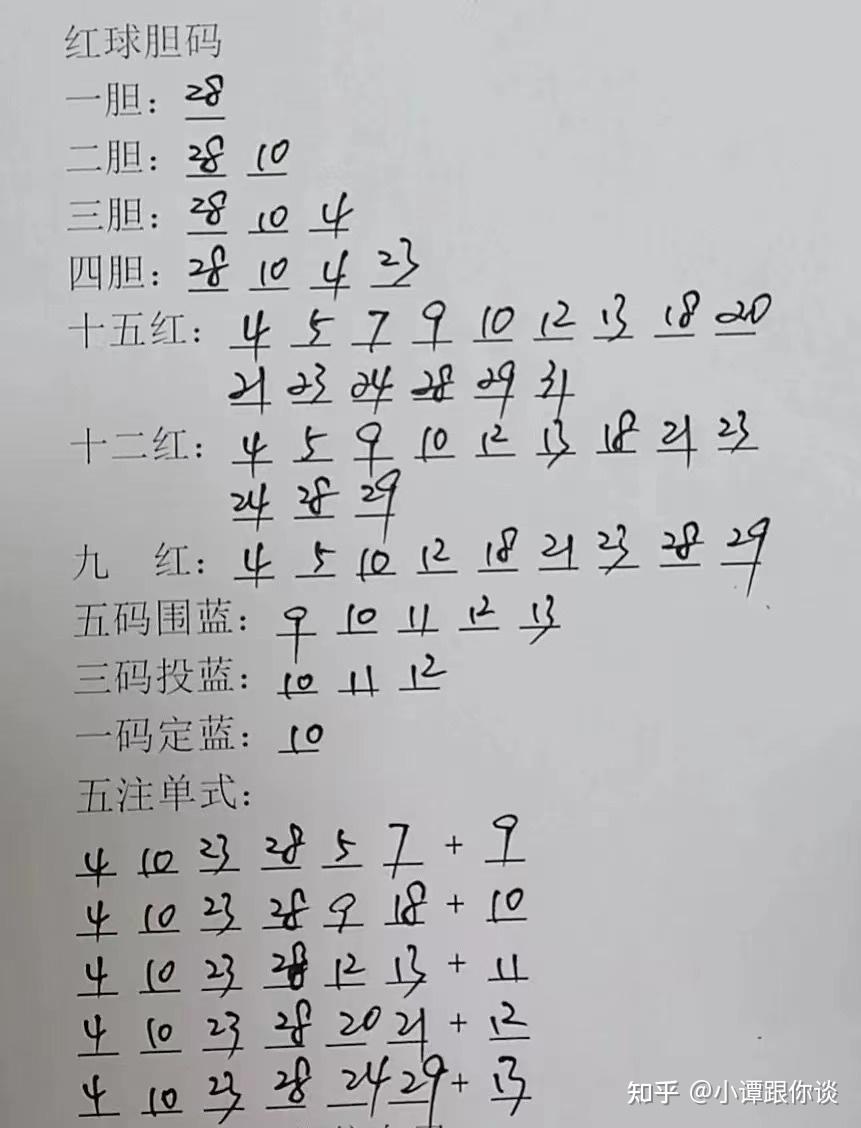 红球胆码
一胆：28
二胆：28 10
三胆：28 10 4
四胆：28 10 4 23
十五红：4 5 7 9 10 12 13 18 20
21 23 24 28 29 31
十二红：4 5 9 10 12 13 18 21 23
24 28 29
九 红：4 5 10 12 18 21 23 28 29
五码围蓝：9 10 11 12 13
三码投蓝：10 11 12
一码定蓝：10
五注单式：
4 10 23 28 5 7 + 9
4 10 23 28 9 18 + 10
4 10 23 28 12 13 + 11
4 10 23 28 20 21 + 12
4 10 23 28 24 29 + 13
知乎 @小谭跟你谈